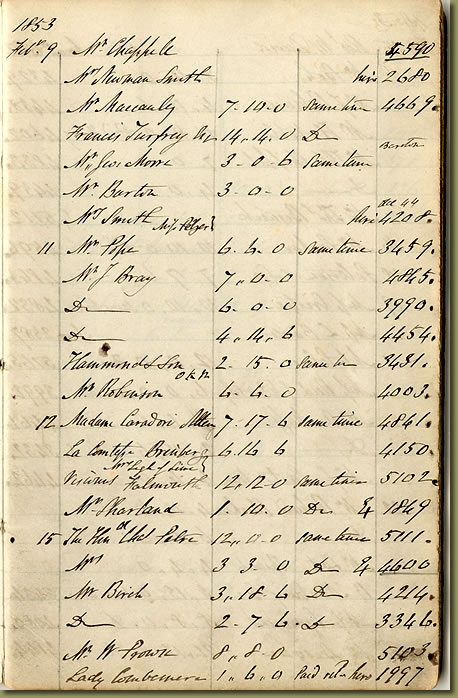 1853
Feb. 9 Mr Chappele 4590
Mr Newman Smith hire 2680
Mr Maccauley 7-10-0 same time 4669.
Francis Turfrey 14,14.0 Do
Barston
Mr Geo Morre 3-0-6 same time
Mr Barton 3-0-0
Dec 44
Mr Smith hire 4208.
11 Mr Pope 6.6.0 same time 3459.
Mr J Bray 7,,0-0 4845.
Do 6-0-0 3990.
Do 4,14,6 4454.
Hammond & Son 2-15.0 same 3431.
Mr Robinson 6-6.0 4003.
12 Madame Caradori Allen 7-17-6 same time 4841.
La Comtesse 6.16 6 4150.
Falmouth 12,12-0 same time 5102.
Mr Sharland 1.10.0 Do 1849
15 The Hon 12,,0-0 same time 5111.
Mrs 3 3-0 Do 4600
Mr Birch 3,18-6 Do 4214.
Do 2-7,6 Do 3346.
Mr W Prown 8,8-0 5103
Lady Combermere 1,6,0 Paid hire 1997